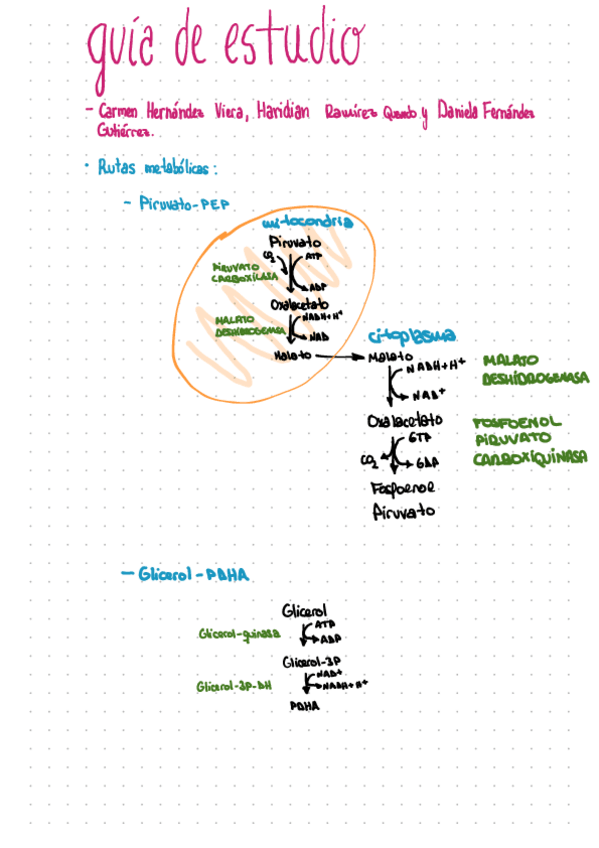 guía de estudio
- Carmen Hernández Viera, Haridian Ramírez Quevedo y Daniela Fernández
Gutiérrez.
· Rutas metabólicas:
- Piruvato-PEP
mitocondria
Piruvato
CO2 ATP
PIRUVATO
CARBOXILASA
ADP
Oxalacetato
MALATO
DESHIDROGENASA
NADH+H+
NAD
Malato
citoplasma
Malato
NADH+H+
MALATO
DESHIDROGENASA
NAD+
Oxalacetato
GTP
FOSFOENOL
PIRUVATO
CARBOXIQUINASA
CO2
Fosfoenol
Piruvato
- Glicerol-PDHA
Glicerol
ATP
Glicerol-quinasa
ADP
Glicerol-3P
NAD+
Glicerol-3P-DH
NADH+H+
PDHA